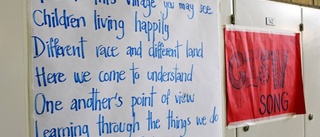 this village you may see
Children living happily
Different race and different land
Here we come to understand
One another's point of view
Learning through the things we do
SONG